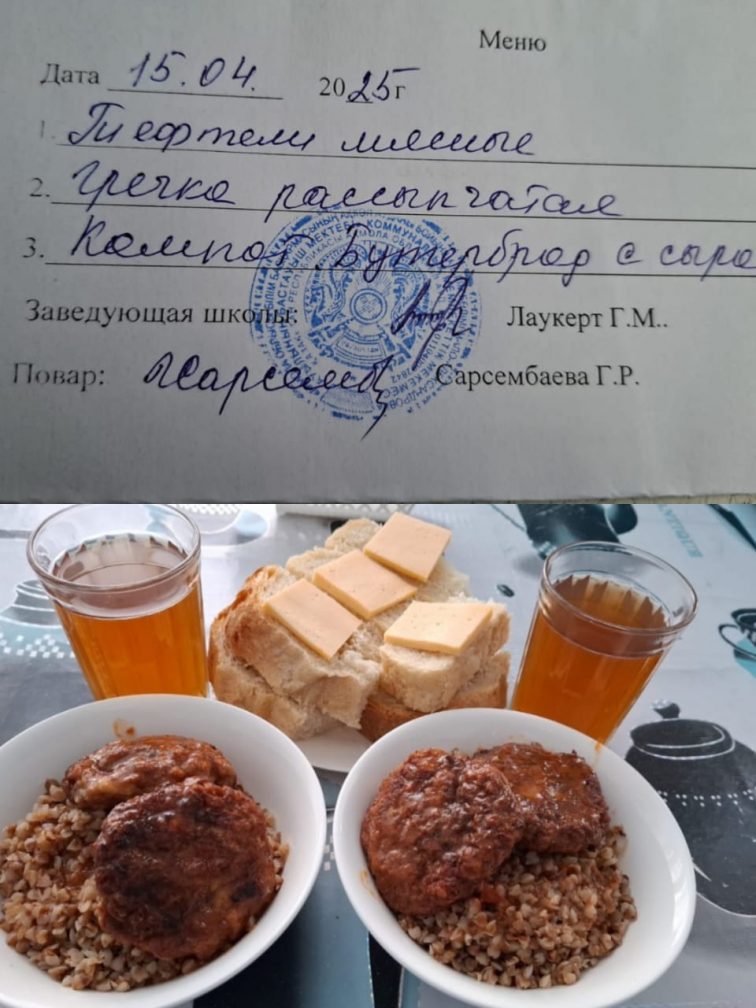 Меню
Дата 15.04. 2025г
1. Тиефтели мясные
2. Гречка рассыпчатая
3. Компот. Бутерброд с сыро
Заведующая школы: Лаукерт Г.М..
Повар: Сарсембаева Г.Р.